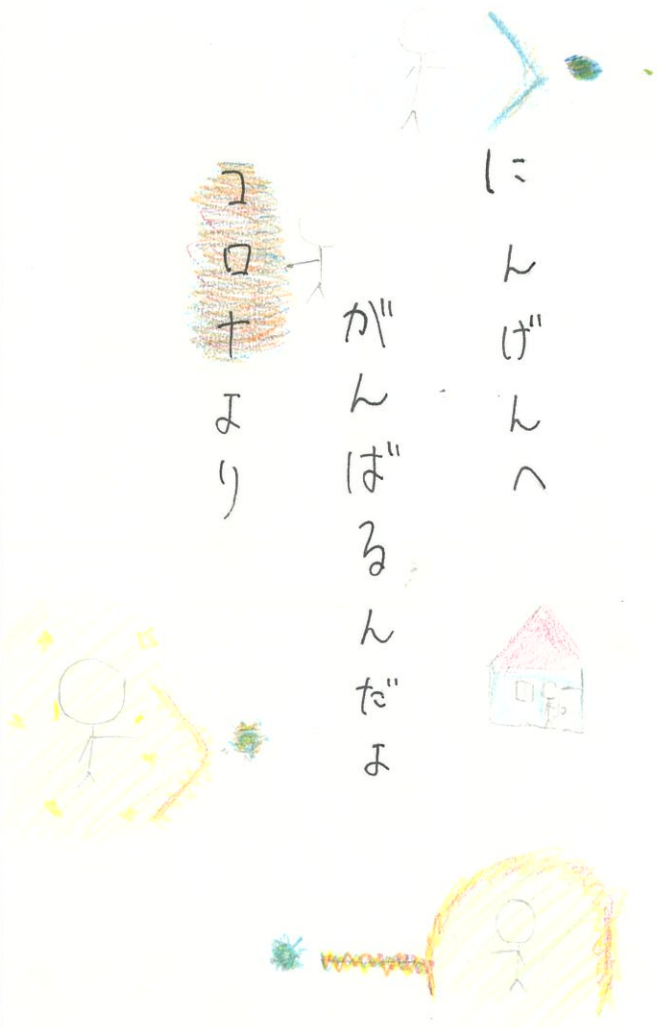 にんげんへ
がんばるんだよ
コロナより